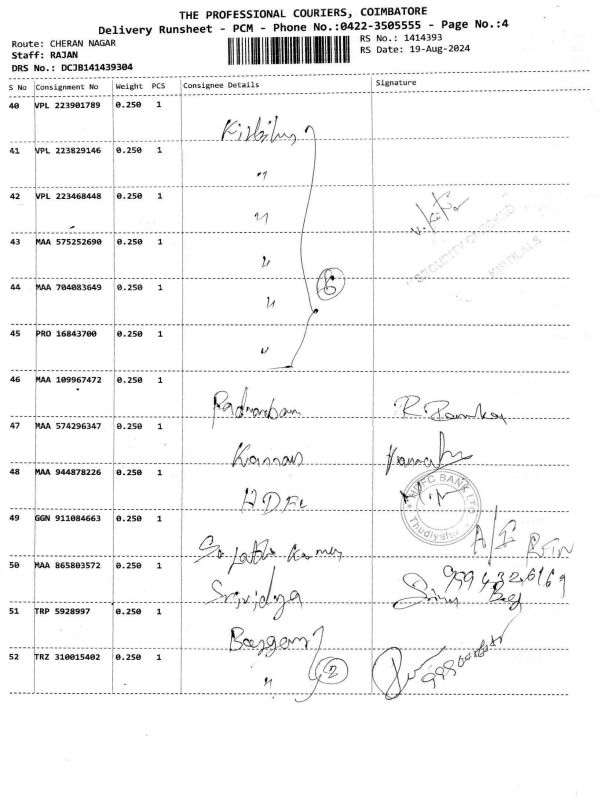 THE PROFESSIONAL COURIERS, COIMBATORE
Delivery Runsheet - PCM - Phone No.:0422-3505555 - Page No.:4
Route: CHERAN NAGAR
RS No.: 1414393
Staff: RAJAN
RS Date: 19-Aug-2024
DRS No.: DCJB141439304
S No Consignment No Weight PCS Consignee Details Signature
40 VPL 223901789 0.250 1
41 VPL 223829146 0.250 1
"
42 VPL 223468448 0.250 1
"
SECURITY CHECKED
KIRTILALS
43 MAA 575252690 0.250 1
"
44 MAA 704083649 0.250 1
"
6
45 PRO 16843700 0.250 1
"
46 MAA 109967472 0.250 1
47 MAA 574296347 0.250 1
Kannan
48 MAA 944878226 0.250 1
HDFC
HDFC BANK LTD
Thudiyalur
49 GGN 911084663 0.250 1
A/I
RTN
50 MAA 865803572 0.250 1
Srividya
51 TRP 5928997 0.250 1
52 TRZ 310015402 0.250 1
"
2